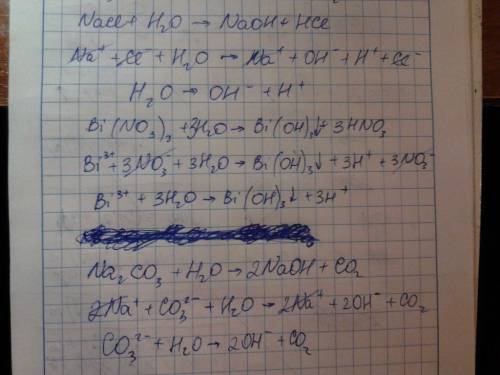 NaCl + H₂O → NaOH + HCl
Na⁺ + Cl⁻ + H₂O → Na⁺ + OH⁻ + H⁺ + Cl⁻
H₂O → OH⁻ + H⁺
Bi(NO₃)₃ + 3H₂O → Bi(OH)₃↓ + 3HNO₃
Bi³⁺ + 3NO₃⁻ + 3H₂O → Bi(OH)₃↓ + 3H⁺ + 3NO₃⁻
Bi³⁺ + 3H₂O → Bi(OH)₃↓ + 3H⁺
Na₂CO₃ + H₂O → 2NaOH + CO₂
2Na⁺ + CO₃²⁻ + H₂O → 2Na⁺ + 2OH⁻ + CO₂
CO₃²⁻ + H₂O → 2OH⁻ + CO₂